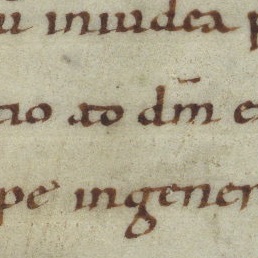 u iniudea p
tio ad dm̄ e
pe ingener